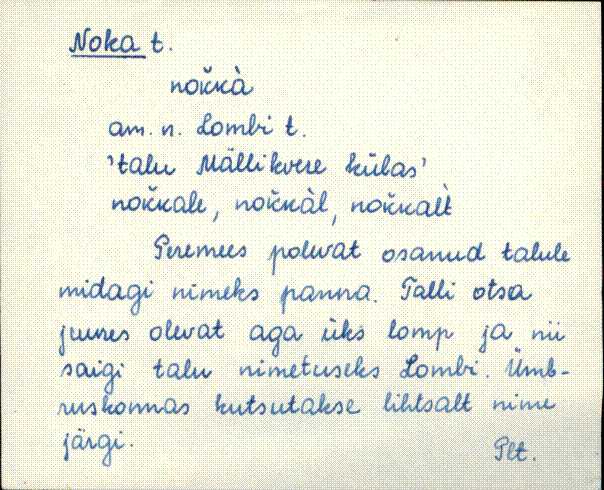 Noka t.
nok̆kà
am. n. Lombi t.
'talu Mällikvere külas'
nok̆kale, nok̆kàl, nok̆kalt̀
Peremees polevat osanud talule
midagi nimeks panna. Talli otsa
juures olevat aga üks lomp ja nii
saigi talu nimetuseks Lombi. Ümb-
ruskonnas kutsutakse lihtsalt nime
järgi.
Plt.